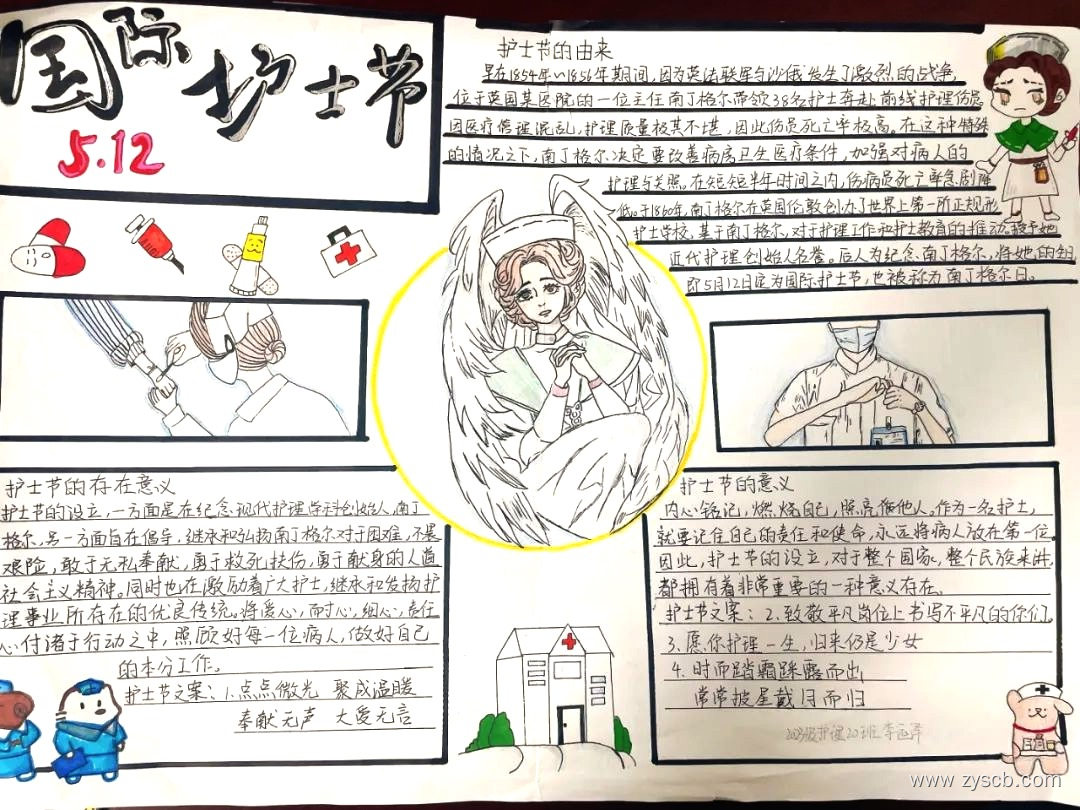 国际护士节
5.12
护士节的由来
早在1854年~1856年期间,因为英法联军与沙俄发生了激烈的战争,
位于英国某医院的一位主任南丁格尔带领38名护士奔赴前线护理伤员
因医疗管理混乱,护理质量极其不堪,因此伤员死亡率极高。在这种特殊
的情况之下,南丁格尔决定要改善病房卫生医疗条件,加强对病人的
护理与关照。在短短半年时间之内,伤病员死亡率急剧降
低。于1860年,南丁格尔在英国伦敦创办了世界上第一所正规形
护士学校,基于南丁格尔,对于护理工作和护士教育的推动。授予她
近代护理创始人名誉。后人为纪念南丁格尔,将她的生日
即5月12日定为国际护士节,也被称为南丁格尔日。
护士节的存在意义
护士节的设立,一方面是在纪念现代护理学科创始人,南丁
格尔,另一方面旨在倡导,继承和弘扬南丁格尔对于困难,不畏
艰险,敢于无私奉献,勇于救死扶伤,勇于献身的人道
社会主义精神。同时也在激励着广大护士,继承和发扬护
理事业所存在的优良传统。将爱心,耐心,细心,责任
心付诸于行动之中,照顾好每一位病人,做好自己
的本分工作。
护士节文案:1.点点微光 聚成温暖
奉献无声 大爱无言
护士节的意义
内心铭记,燃烧自己,照亮他人。作为一名护士,
就要记住自己的责任和使命,永远将病人放在第一位。
因此,护士节的设立,对于整个国家,整个民族来讲,
都拥有着非常重要的一种意义存在。
护士节文案:2.致敬平凡岗位上书写不平凡的你们。
3.愿你护理一生,归来仍是少女
4.时而踏霜踩露而出
常常披星戴月而归
级护理20班 李
www.zyscb.com